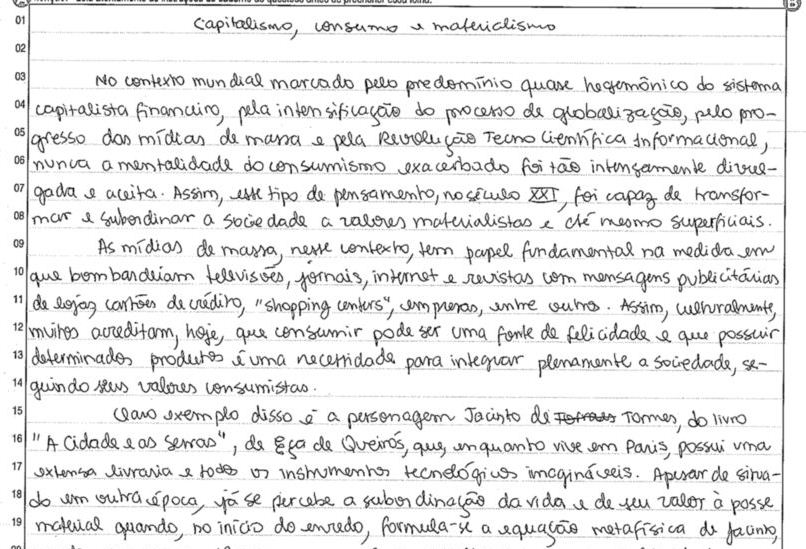 01 Capitalismo, consumo e materialismo
02
03 No contexto mundial marcado pelo predomínio quase hegemônico do sistema
04 capitalista financeiro, pela intensificação do processo de globalização, pelo pro-
05 gresso das mídias de massa e pela Revolução Tecno Científica Informacional,
06 nunca a mentalidade do consumismo exacerbado foi tão intensamente divul-
07 gada e aceita. Assim, esse tipo de pensamento, no século XXI, foi capaz de transfor-
08 mar e subordinar a sociedade a valores materialistas e até mesmo superficiais.
09 As mídias de massa, nesse contexto, tem papel fundamental na medida em
10 que bombardeiam televisões, jornais, internet e revistas com mensagens publicitárias
11 de lojas, cartões de crédito, "shopping centers", empresas, entre outros. Assim, culturalmente,
12 muitos acreditam, hoje, que consumir pode ser uma fonte de felicidade e que possuir
13 determinados produtos é uma necessidade para integrar plenamente a sociedade, se-
14 guindo seus valores consumistas.
15 Claro exemplo disso é a personagem Jacinto de Tormes, do livro
16 "A Cidade e as Serras", de Eça de Queirós, que, enquanto vive em Paris, possui uma
17 extensa livraria e todos os instrumentos tecnológicos imagináveis. Apesar de situa-
18 do em outra época, já se percebe a subordinação da vida e de seu valor à posse
19 material quando, no início do enredo, formula-se a equação metafísica de Jacinto,